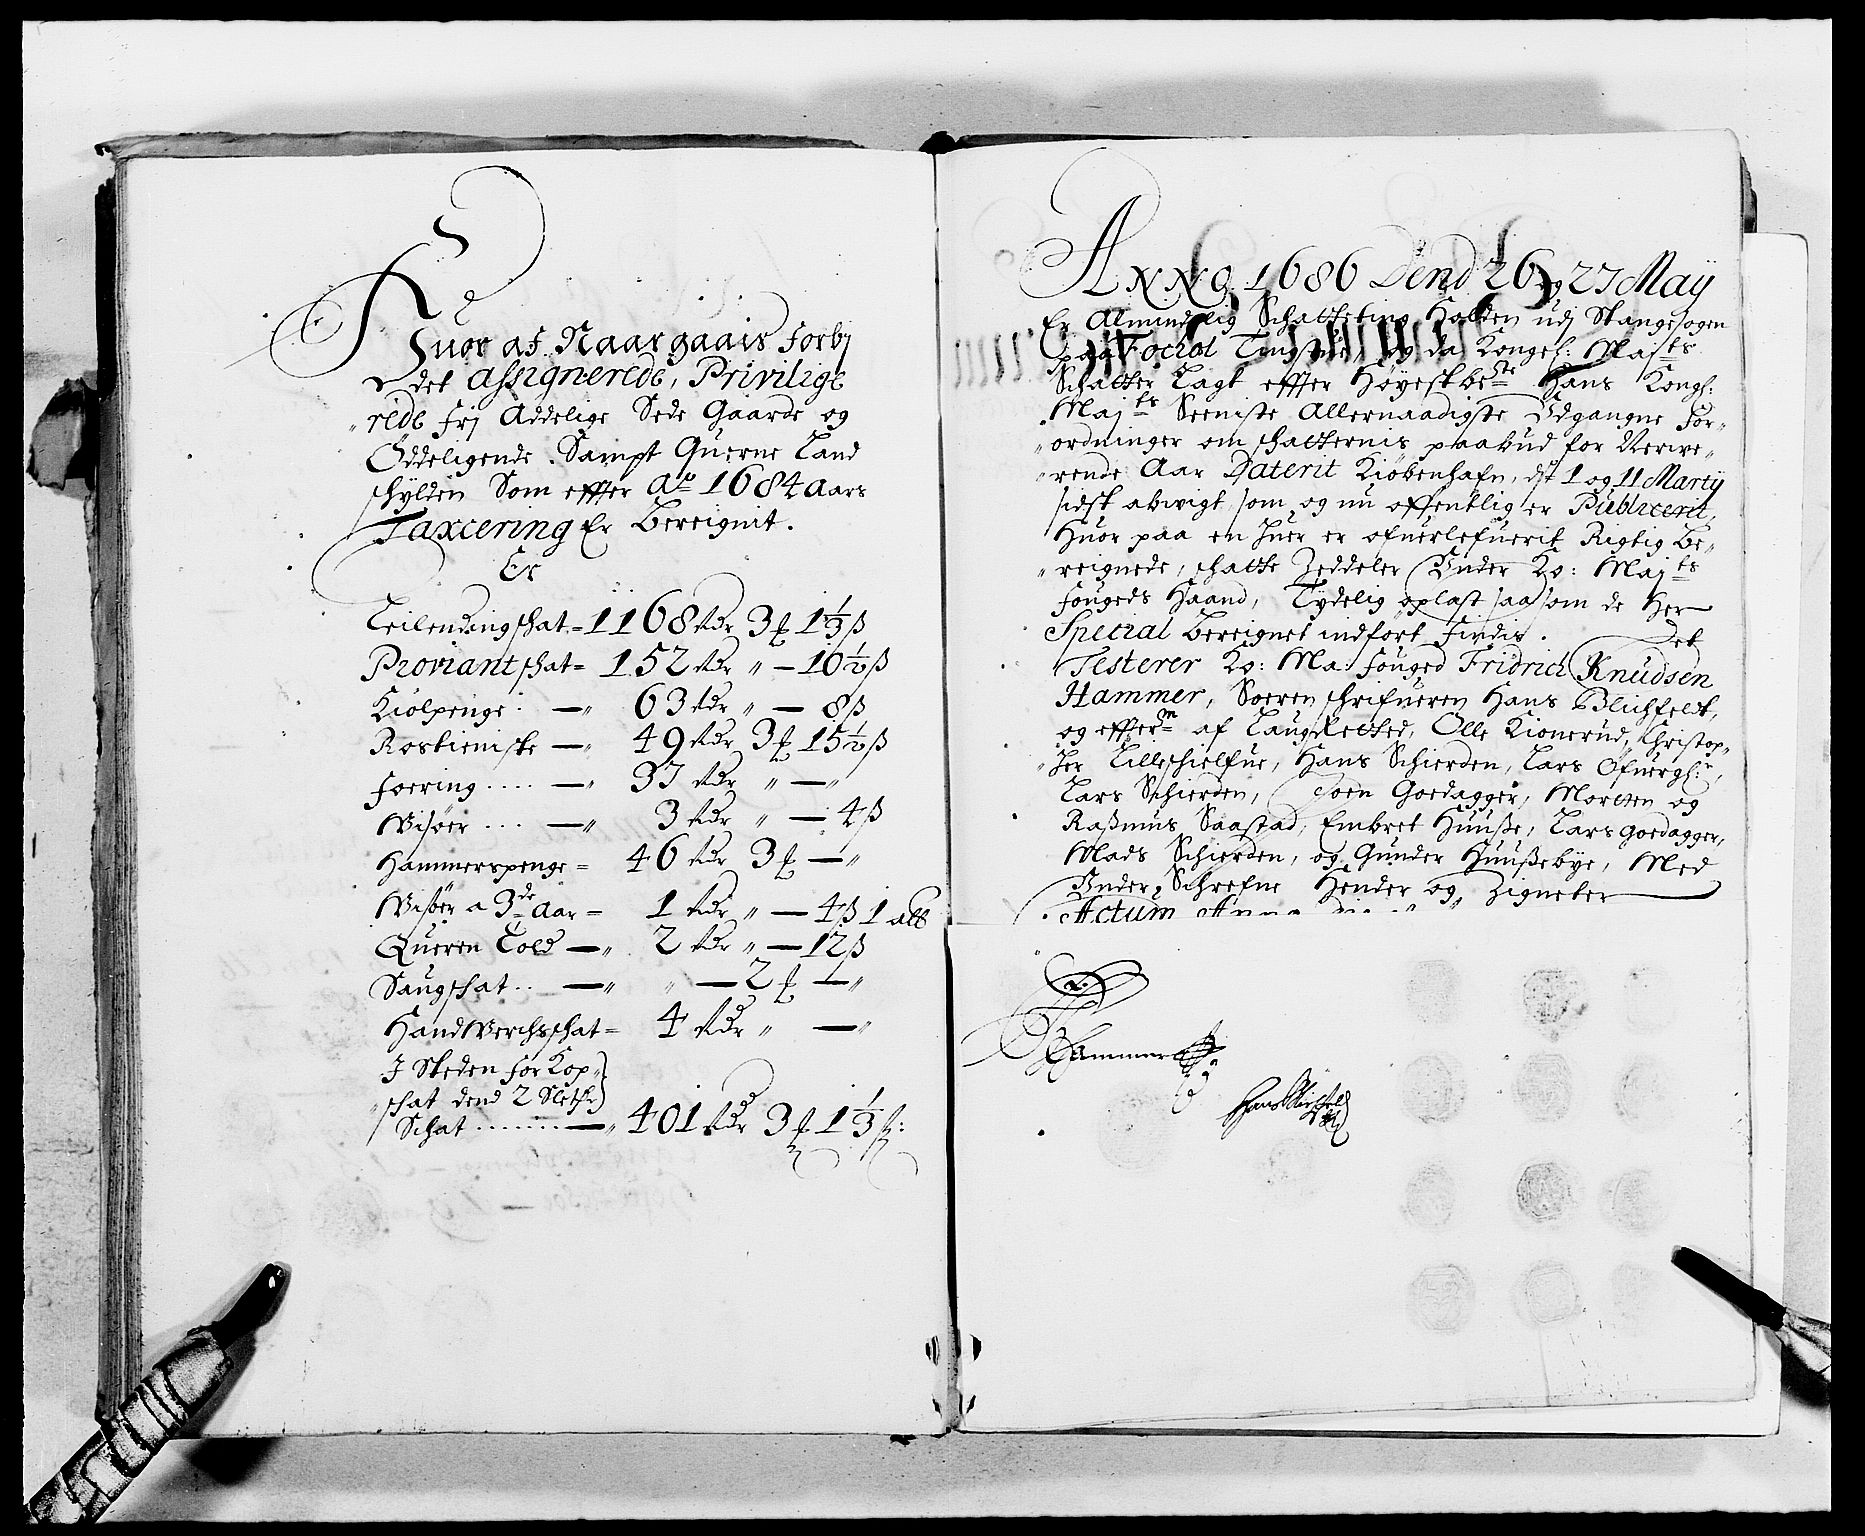 Huor af Naar gaais forbj
det assignerede, Privilige
rede frj Addelige Sede Gaarde og
Øddeligende Sampt Querne Land
schylden Som effter Ao 1684 Aars
Taxcering Er bereignit.
Er
Leilendingschat = 1168 Rdr 3 ƒ 1⅓ ß
Proviantschat = 152 Rdr „ — 10½ ß
Kiølpenge — „ 63 Rdr „ — 8 ß
Rostieniste — „ 49 Rdr 3 ƒ 15½ ß
Foering .... — „ 37 Rdr „ — „
Wisøer ... — „ 3 Rdr „ — 4 ß
Hammerspenge = 46 Rdr 3 ƒ — „
Wisøer a 3de Aar = 1 Rdr „ — 4 ß 1 alb
Queren Told — „ 2 Rdr „ — 12 ß
Saugschat .. — „ „ — 2 ƒ — „
HandWerchsschat = 4 Rdr „ — „
I Steden for Kop„
„schat dend 2 Sletste
Schat ........ — „ 401 Rdr 3 ƒ 1⅓ ß:
ANNO 1686 Dend 26 og 27 May
Er Almindelig Schatteting holden udj Stangesogen
paa Tingstue, og da Kongl: Majts
Schatter Lagt effter Høyestbete Hans Kongl:
Majts Seeniste Allernaadigste Udgangne For„
„ordninger om schatternis paabud for Nerwe„
„rende Aar Daterit Kiøbenhafn, dt 1 og 11 Marty
sidst abwigt som og nu offentlig er Publicerit,
Huor paa en huer er ofuerlefuerit Rigtig Be„
„reignede, schatte Zeddeler Under Ko: Majts
fougeds Haand, Tydelig oplast saasom de her
Special bereignet indfört findis. Det
Testerer Ko: Ma: fouged Fridrich Knudsen
Hammer, Soeren schrifueren Hans Blichfeldt,
og effterm af Laugretted, Olle Kionerud, Christop„
„her Lilleschielfue, Hans Schierden, Lars Ofuergl:r,
Lars Schierden, Joen Goedagger, Morten og
Raßmus Saastad, Embret Huuße, Lars Goedagger,
Mads Schierden, og Gunder Huußebye, Med
Under Schrefne Hender og Zigneter
Actum Anno
Hammer
Hans Blichfeld